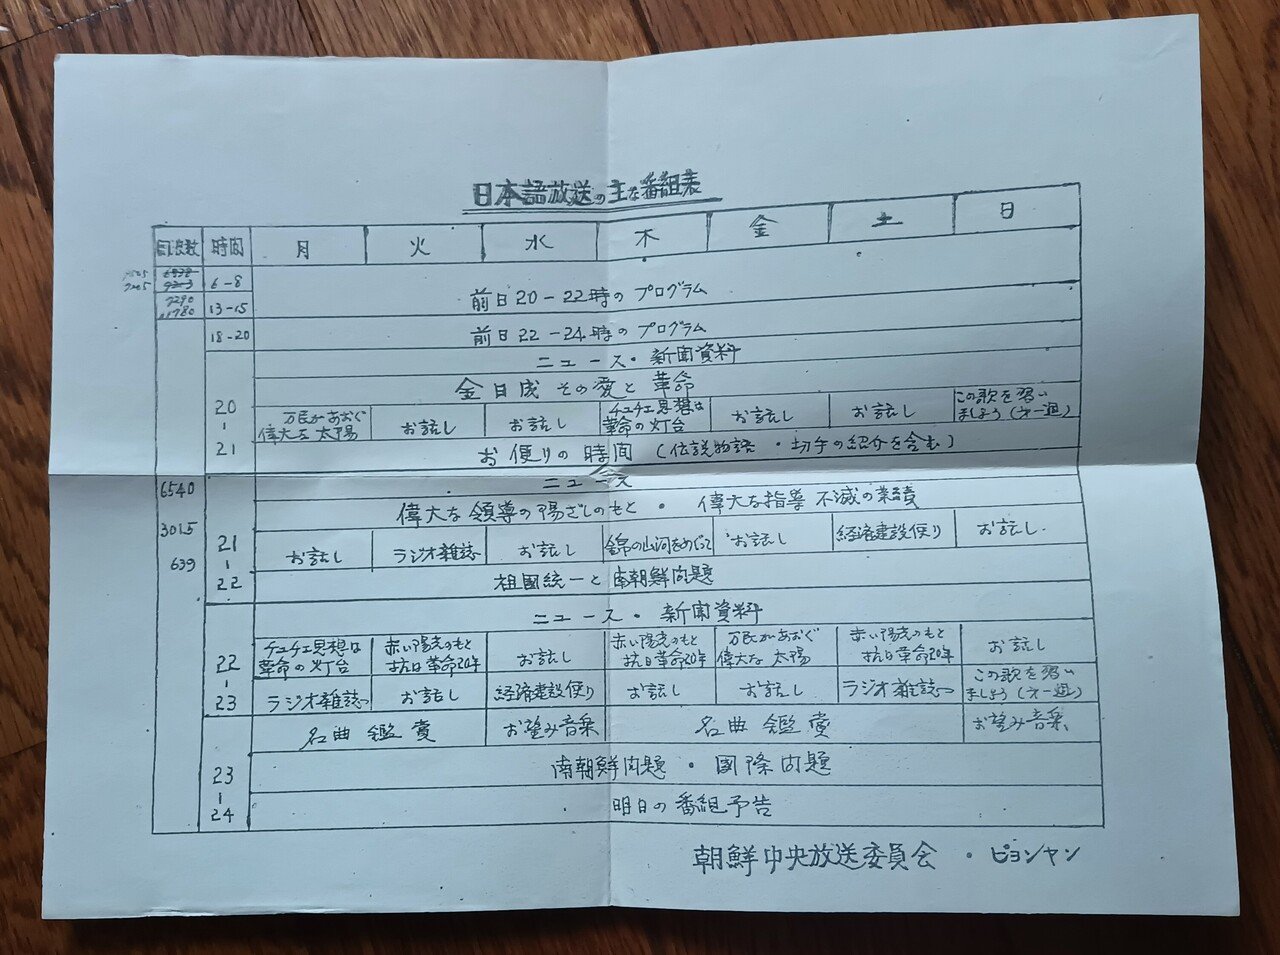 日本語放送の主な番組表
周波数 時間 月 火 水 木 金 土 日
6-8 前日20-22時のプログラム
13-15
18-20 前日22-24時のプログラム
ニュース・新聞資料
金日成 その愛と革命
20-21
万民があおぐ偉大な太陽 お話し お話し チュチェ思想は革命の灯台 お話し お話し この歌を習いましょう(才一週)
お便りの時間(伝説物語・切手の紹介を含む)
6540
3015
639
ニュース
偉大な領導の陽ざしのもと・偉大な指導 不滅の業績
21-22
お話し ラジオ雑誌 お話し 錦の山河をめぐって お話し 経済建設便り お話し
祖国統一と南朝鮮問題
ニュース・新聞資料
22-23
チュチェ思想は革命の灯台 赤い陽光のもと抗日革命20年 お話し 赤い陽光のもと抗日革命20年 万民があおぐ偉大な太陽 赤い陽光のもと抗日革命20年 お話し
ラジオ雑誌 お話し 経済建設便り お話し お話し ラジオ雑誌 この歌を習いましょう(才一週)
名曲鑑賞 お望み音楽 名曲鑑賞 お望み音楽
23-24
南朝鮮問題・国際問題
明日の番組予告
朝鮮中央放送委員会・ピョンヤン